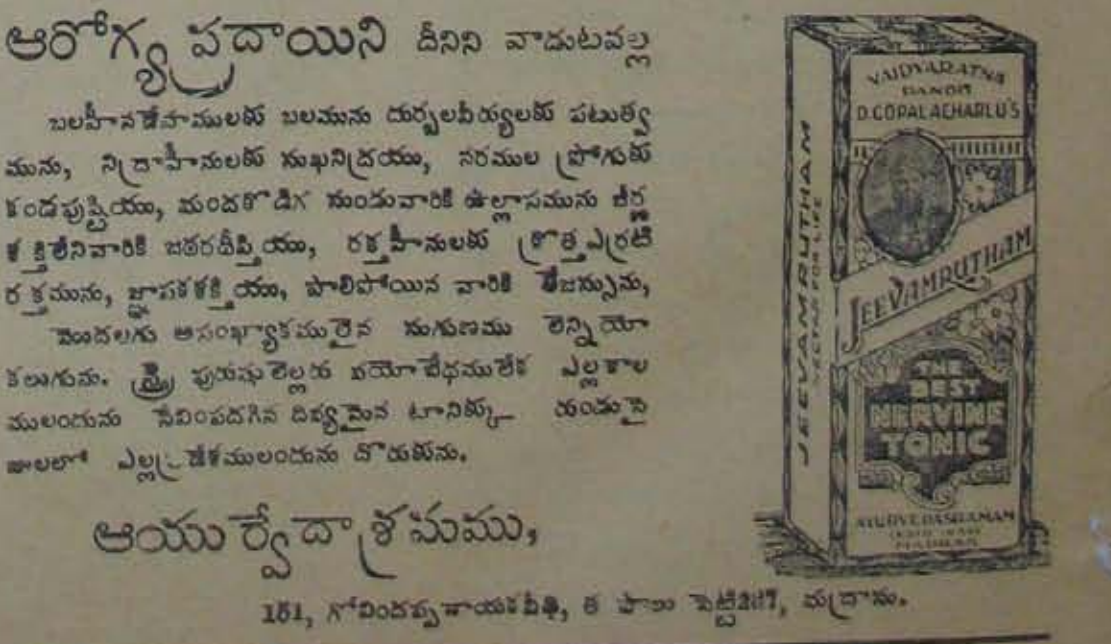 ఆరోగ్య ప్రదాయిని దీనిని వాడుటవల్ల
బలహీనదేహములకు బలమును దుర్బలవీర్యులకు పటుత్వ
మును, నిద్రాహీనులకు సుఖనిద్రయు, నరముల ప్రోగుకు
కండపుష్టియు, మందకొడిగ నుండువారికి ఉల్లాసమును జీర్ణ
శక్తిలేనివారికి జఠరదీప్తియు, రక్తహీనులకు క్రొత్తఎర్రటి
రక్తమును, జ్ఞాపకశక్తియు, పాలిపోయిన వారికి తేజస్సును,
మొదలగు అసంఖ్యాకములైన సుగుణము లెన్నియో
కలుగును. స్త్రీ పురుషులెల్లరు వయోభేధములేక ఎల్లకాల
ములందును సేవింపదగిన దివ్యమైన టానిక్కు రుండుసై
జులలో ఎల్లప్రదేశములందును దొరుకును.
ఆయుర్వేదాశ్రమము,
151, గోవిందప్పనాయకవీథి, మద్రాసు.
VAIDYARATNA
PANDIT
D.GOPALACHARLU'S
JEEVAMRUTHAM
THE
BEST
NERVINE
TONIC
AYURVEDASRAMAM
MADRAS
JEEVAMRUTHAM
NECTAR FOR LIFE